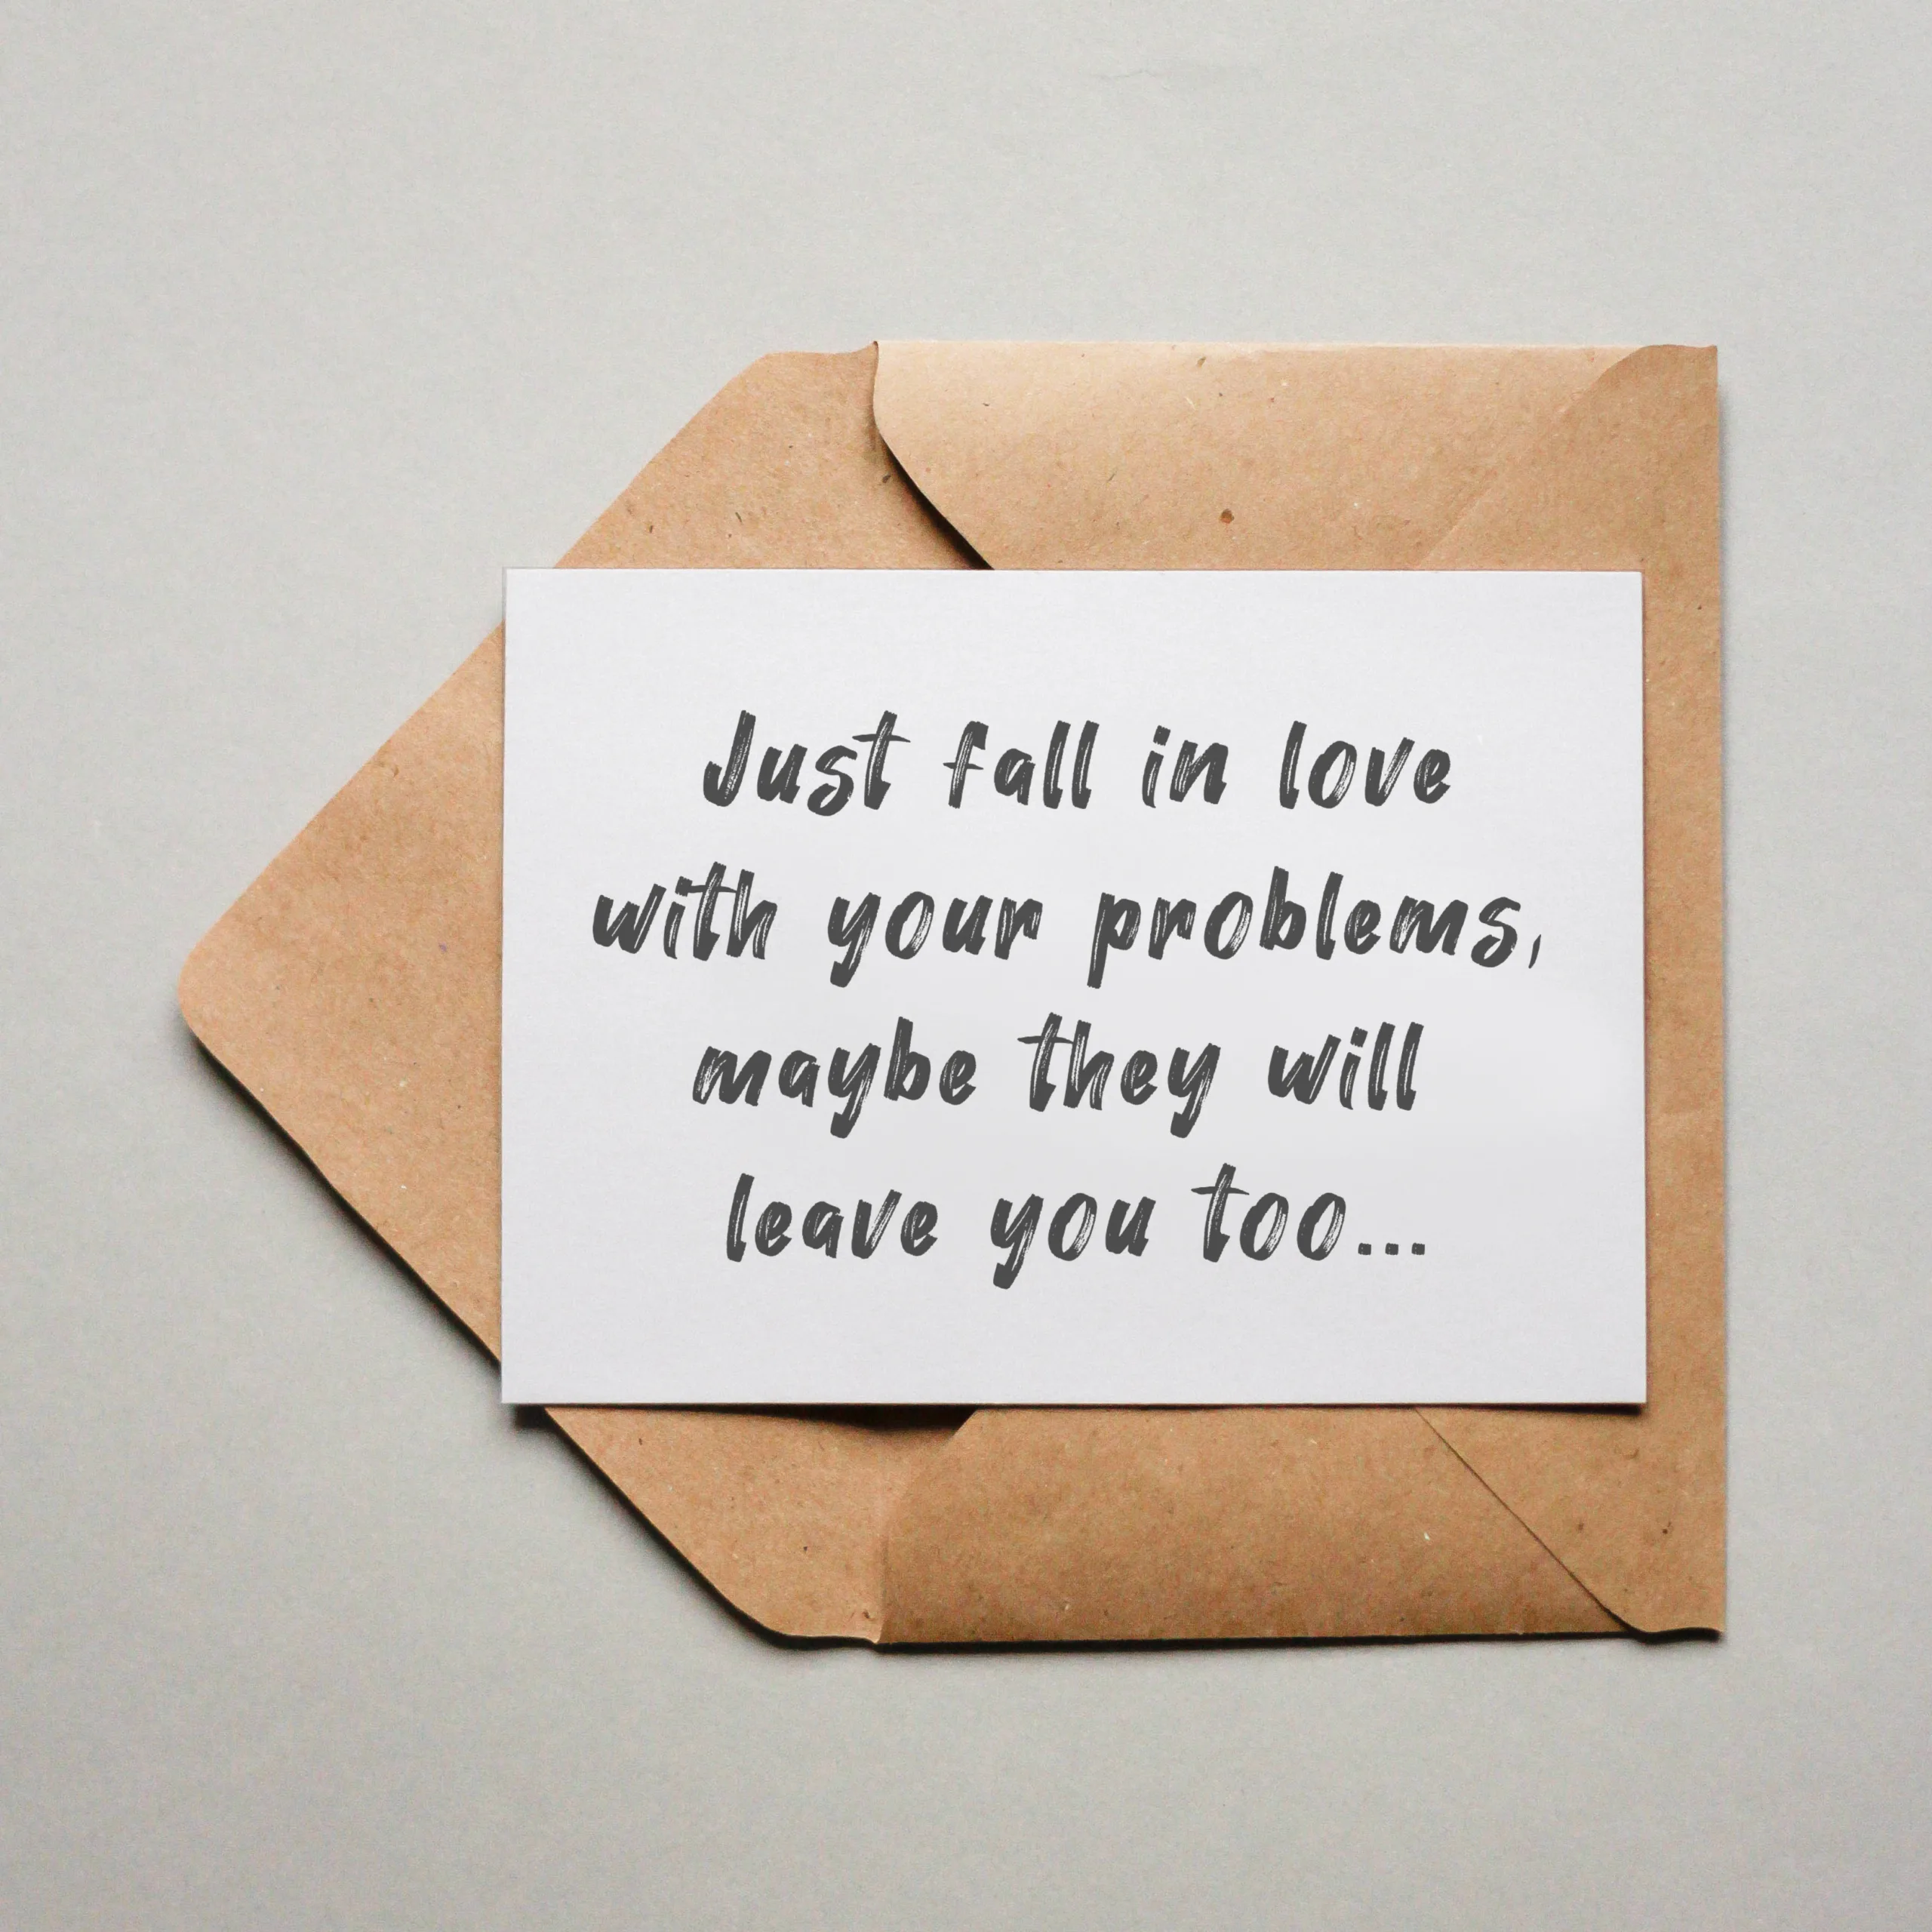 Just fall in love
with your problems,
maybe they will
leave you too...